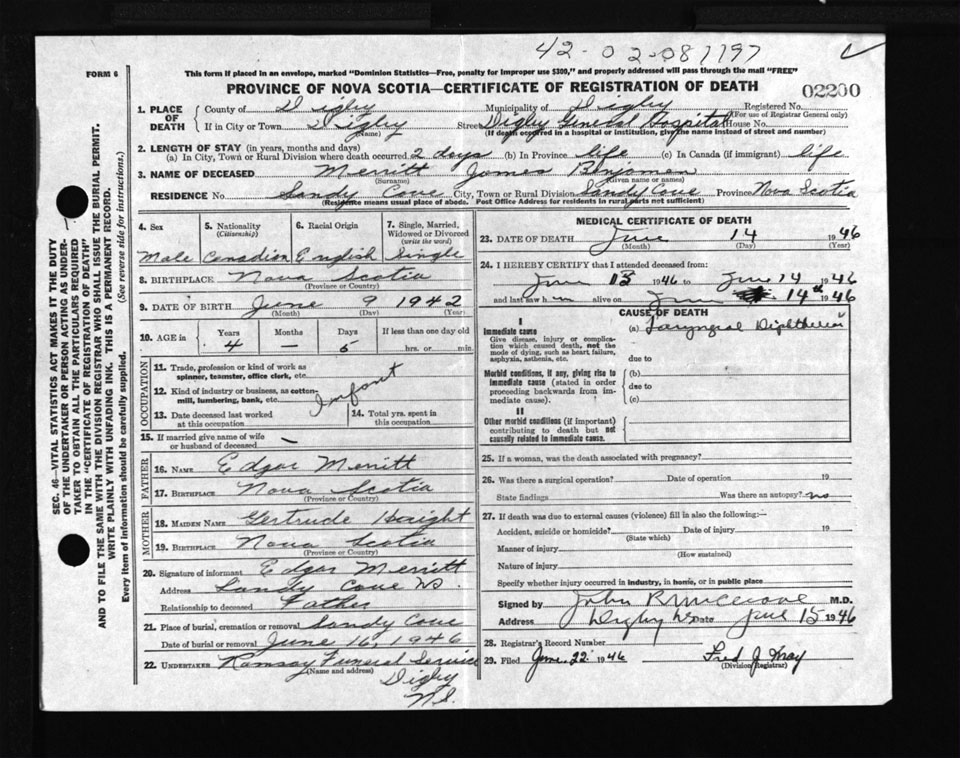 42-02-081197
FORM 6
This form if placed in an envelope, marked "Dominion Statistics—Free, penalty for improper use $300," and properly addressed will pass through the mail "FREE"
PROVINCE OF NOVA SCOTIA—CERTIFICATE OF REGISTRATION OF DEATH
02200
1. PLACE OF DEATH
County of Digby Municipality of Digby Registered No.
(For use of Registrar General only)
If in City or Town Digby Street Digby General Hospital House No.
(Name) (If death occurred in a hospital or institution, give the name instead of street and number)
2. LENGTH OF STAY (in years, months and days)
(a) In City, Town or Rural Division where death occurred 2 days (b) In Province life (c) In Canada (if immigrant) life
3. NAME OF DECEASED Merritt James Benjomen
(Surname) (Given name or names)
RESIDENCE No Sandy Cove City, Town or Rural Division Sandy Cove Province Nova Scotia
(Residence means usual place of abode. Post Office Address for residents in rural parts not sufficient)
SEC. 46—VITAL STATISTICS ACT MAKES IT THE DUTY
OF THE UNDERTAKER OR PERSON ACTING AS UNDER-
TAKER TO OBTAIN ALL THE PARTICULARS REQUIRED
IN THE "CERTIFICATE OF REGISTRATION OF DEATH"
AND TO FILE THE SAME WITH THE DIVISION REGISTRAR WHO SHALL ISSUE THE BURIAL PERMIT.
WRITE PLAINLY WITH UNFADING INK. THIS IS A PERMANENT RECORD.
Every item of information should be carefully supplied. (See reverse side for instructions.)
4. Sex 5. Nationality (Citizenship) 6. Racial Origin 7. Single, Married, Widowed or Divorced (write the word)
Male Canadian English Single
8. BIRTHPLACE Nova Scotia
(Province or Country)
9. DATE OF BIRTH June 9 1942
(Month) (Day) (Year)
10. AGE in Years Months Days If less than one day old
4 — 5 hrs. or min.
OCCUPATION
11. Trade, profession or kind of work as
spinner, teamster, office clerk, etc.
12. Kind of industry or business, as cotton-
mill, lumbering, bank, etc.
Infant
13. Date deceased last worked at this occupation
14. Total yrs. spent in this occupation
15. If married give name of wife
or husband of deceased —
FATHER
16. NAME Edgar Merritt
17. BIRTHPLACE Nova Scotia
(Province or Country)
MOTHER
18. MAIDEN NAME Gertrude Haight
19. BIRTHPLACE Nova Scotia
(Province or Country)
20. Signature of informant Edgar Merritt
Address Sandy Cove NS.
Relationship to deceased Father
21. Place of burial, cremation or removal Sandy Cove
Date of burial or removal June 16, 1946
22. UNDERTAKER Ramsay Funeral Service
(Name and address)
Digby
N.S.
MEDICAL CERTIFICATE OF DEATH
23. DATE OF DEATH June 14 1946
(Month) (Day) (Year)
24. I HEREBY CERTIFY that I attended deceased from:
June 13 1946 to June 14 1946
and last saw him alive on June 14th 1946
CAUSE OF DEATH
I
Immediate cause (a) Laryngeal Diphtheria
Give disease, injury or complica-
tion which caused death, not the
mode of dying, such as heart failure,
asphyxia, asthenia, etc. due to
Morbid conditions, if any, giving rise to (b)
immediate cause (stated in order due to
proceeding backwards from im-
mediate cause). (c)
II
Other morbid conditions (if important)
contributing to death but not
causally related to immediate cause.
25. If a woman, was the death associated with pregnancy?
26. Was there a surgical operation? Date of operation 19
State findings Was there an autopsy? no
27. If death was due to external causes (violence) fill in also the following:—
Accident, suicide or homicide? Date of injury 19
(State which)
Manner of injury
(How sustained)
Nature of injury
Specify whether injury occurred in industry, in home, or in public place
Signed by John R M.D.
Address Digby NS Date June 15 1946
28. Registrar's Record Number
29. Filed June 22 1946 Fred J.
(Division Registrar)